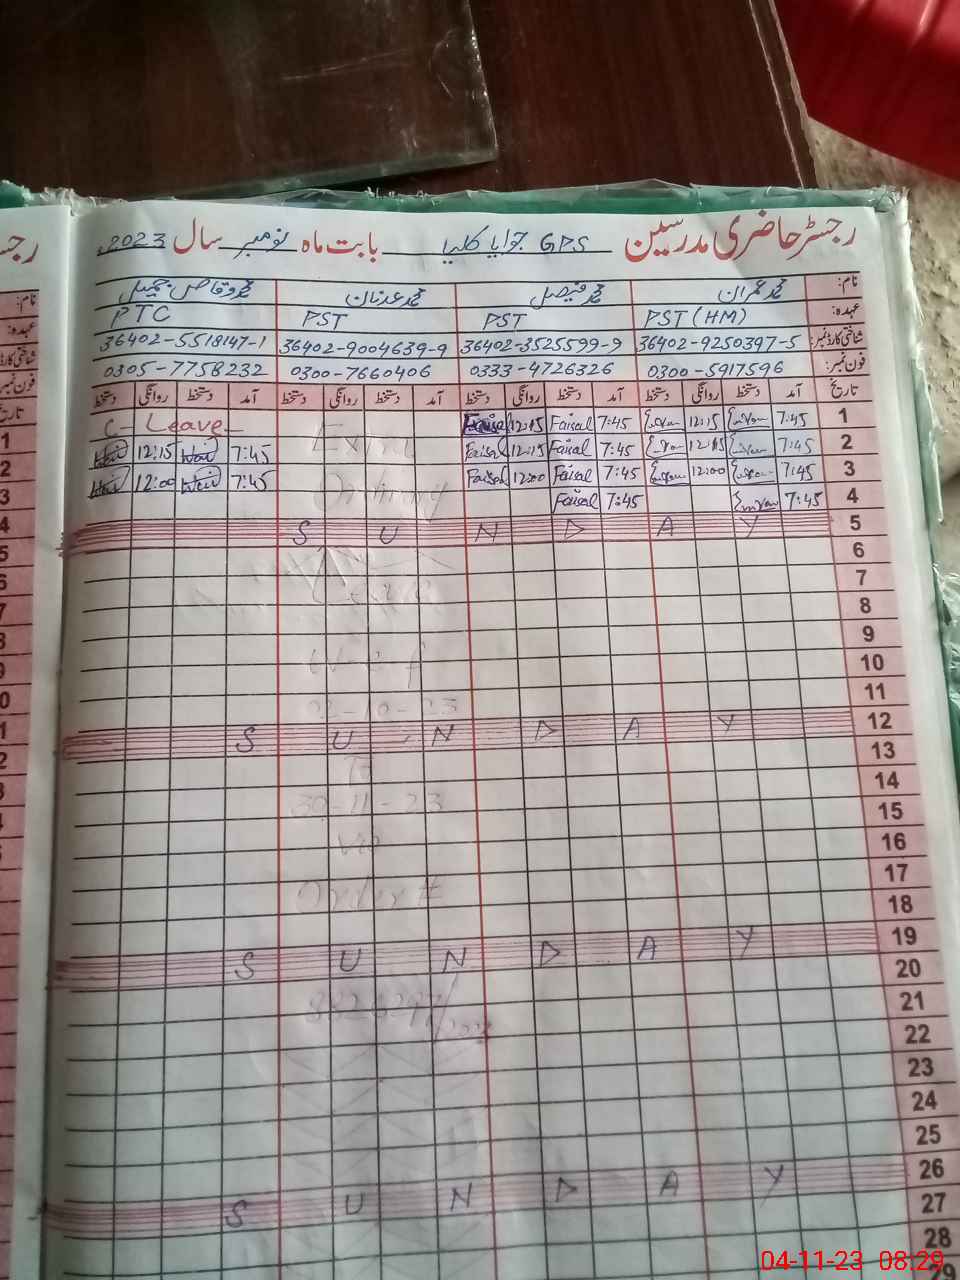 رجسٹر حاضری مدرسین GPS جوایا کلیا بابت ماہ نومبر سال 2023
نام: محمد عمران محمد فیصل محمد عدنان محمد وقاص جمیل
عہدہ: PST (HM) PST PST PTC
شناختی کارڈ نمبر: 36402-9250397-5 36402-3525599-9 36402-9004639-9 36402-5518147-1
فون نمبر: 0300-5917596 0333-4726326 0300-7660406 0305-7758232
تاریخ آمد دستخط روانگی دستخط آمد دستخط روانگی دستخط آمد دستخط روانگی دستخط آمد دستخط روانگی دستخط
1 7:45 12:15 7:45 Faisal 12:15 Faisal Extra C-Leave
2 7:45 12:15 7:45 Faisal 12:15 Faisal 7:45 12:15
3 7:45 12:00 7:45 Faisal 12:00 Faisal Ordinary 7:45 12:00
4 7:45 7:45 Faisal
5 S U N D A Y
6
7 Leave
8
9
10 w.e.f
11
02-10-23
12 S U N D A Y
13 To
14
30-11-23
15
16
17
Order #
18
19 S U N D A Y
20
21
22
23
24
25
26 S U N D A Y
27
28
29
04-11-23 08:29